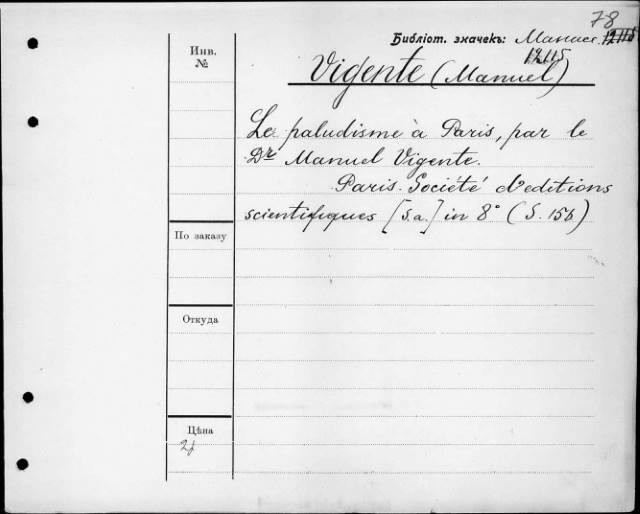 78
Библіот. значекъ: Manacc. 12115
12115
Инв.
№
Vigente (Manuel)
Le paludisme à Paris, par le
Dr Manuel Vigente.
Paris. Société d'editions
scientifiques [s.a.] in 8° (S. 156)
По заказу
Откуда
Цѣна